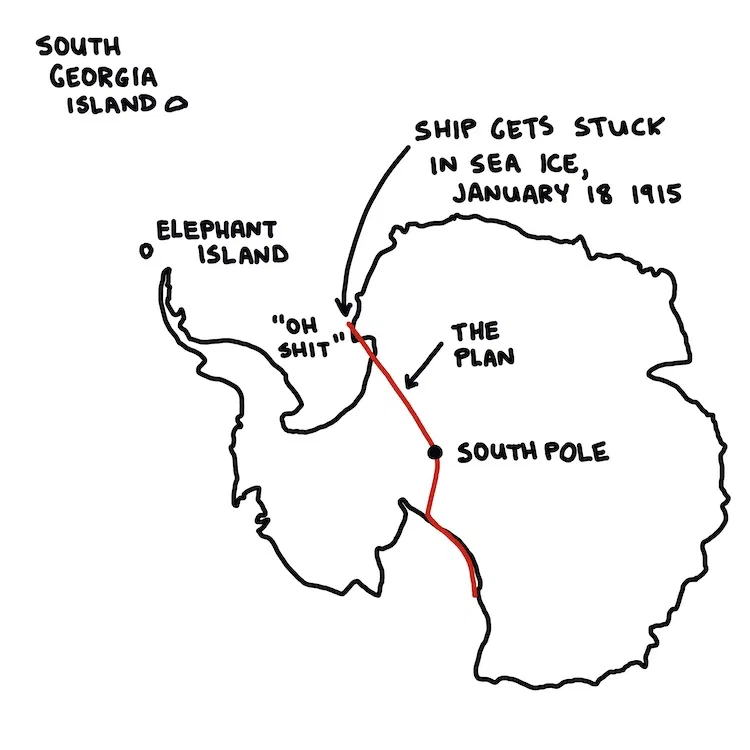 SOUTH
GEORGIA
ISLAND
SHIP GETS STUCK
IN SEA ICE,
JANUARY 18 1915
ELEPHANT
ISLAND
"OH
SHIT"
THE
PLAN
SOUTH POLE